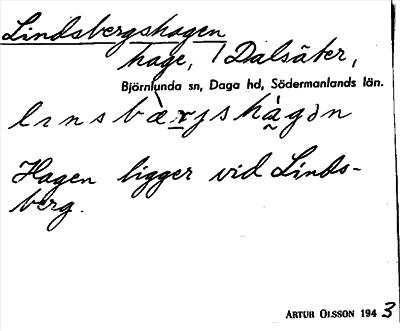 Lindsbergshagen
hage, Dalsäter,
Björnlunda sn, Daga hd, Södermanlands län.
Hagen ligger vid Linds-
berg.
ARTUR OLSSON 1943